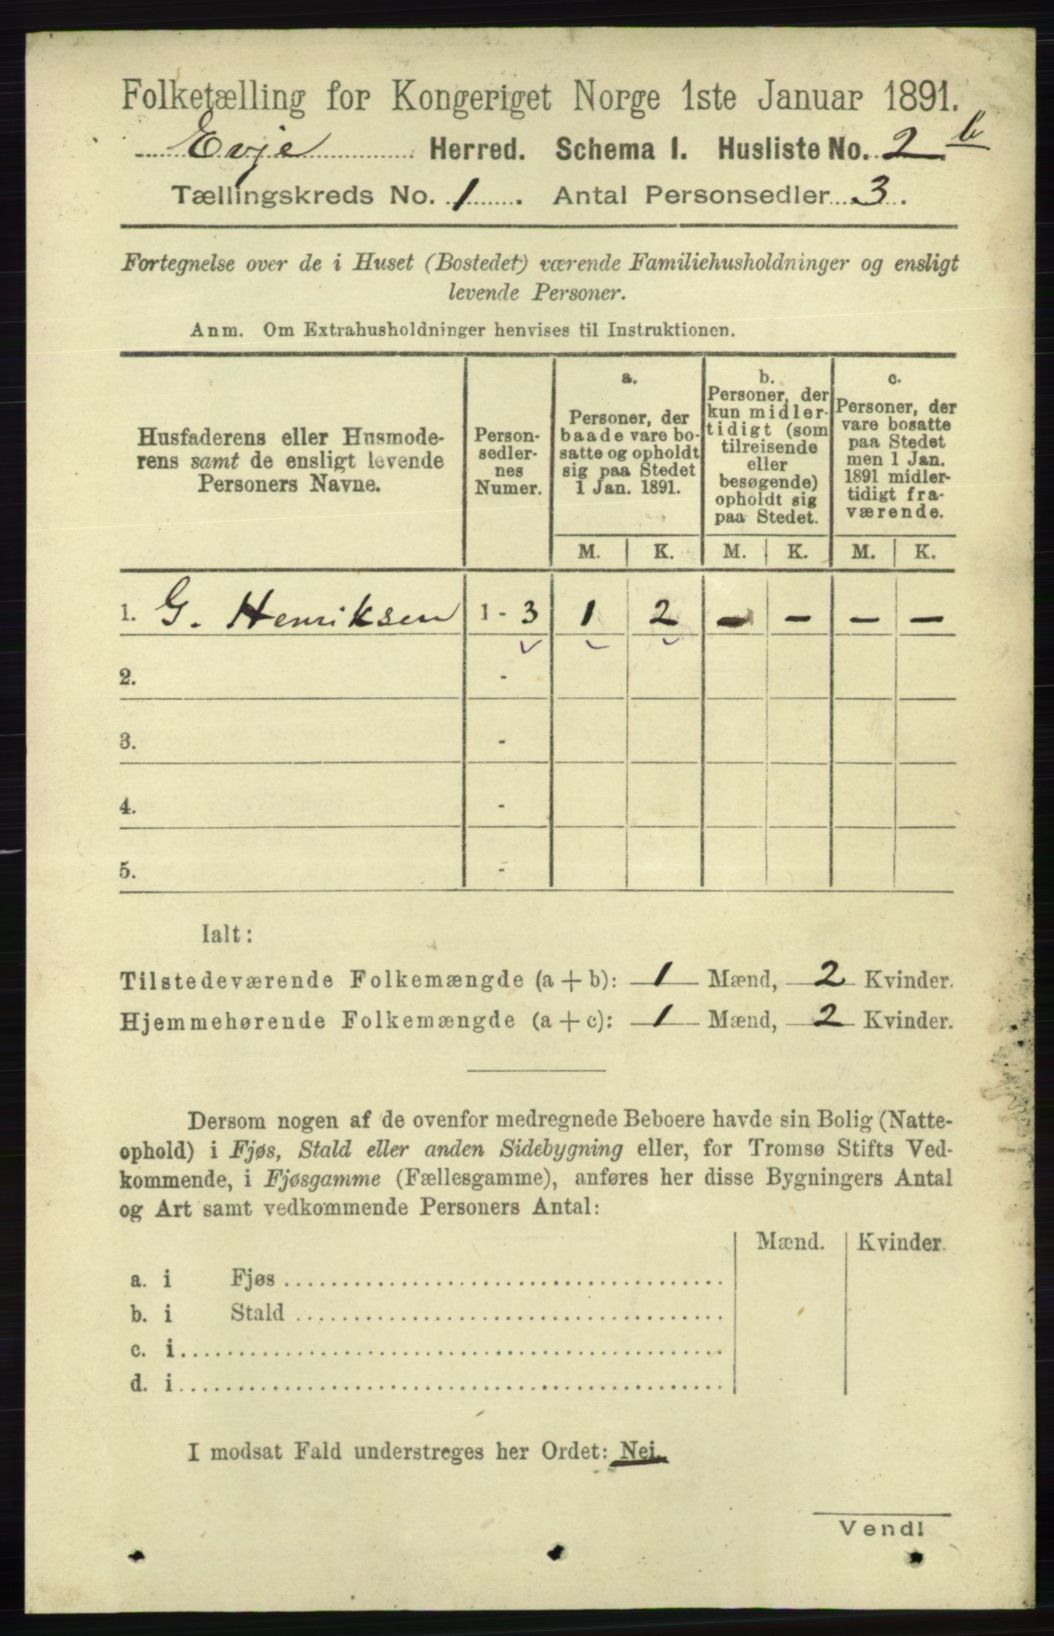 Folketælling for Kongeriget Norge 1ste Januar 1891.
Evje Herred. Schema I. Husliste No. 2 b
Tællingskreds No. 1 . Antal Personsedler 3 .
Fortegnelse over de i Huset (Bostedet) værende Familiehusholdninger og ensligt
levende Personer.
Anm. Om Extrahusholdninger henvises til Instruktionen.
Husfaderens eller Husmode-
rens samt de ensligt levende
Personers Navne.
Person-
sedler-
nes
Numer.
a.
Personer, der
baade vare bo-
satte og opholdt
sig paa Stedet
1 Jan. 1891.
b.
Personer, der
kun midler-
tidigt (som
tilreisende
eller
besøgende)
opholdt sig
paa Stedet.
c.
Personer, der
vare bosatte
paa Stedet
men 1 Jan.
1891 midler-
tidigt fra-
værende.
M. K. M. K. M. K.
1. G. Henriksen 1 - 3 1 2 - - - -
2. -
3. -
4. -
5. -
Ialt:
Tilstedeværende Folkemængde (a + b): 1 Mænd, 2 Kvinder.
Hjemmehørende Folkemængde (a + c): 1 Mænd, 2 Kvinder.
Dersom nogen af de ovenfor medregnede Beboere havde sin Bolig (Natte-
ophold) i Fjøs, Stald eller anden Sidebygning eller, for Tromsø Stifts Ved-
kommende, i Fjøsgamme (Fællesgamme), anføres her disse Bygningers Antal
og Art samt vedkommende Personers Antal:
Mænd. Kvinder.
a. i Fjøs
b. i Stald
c. i
d. i
I modsat Fald understreges her Ordet: Nei.
Vend!